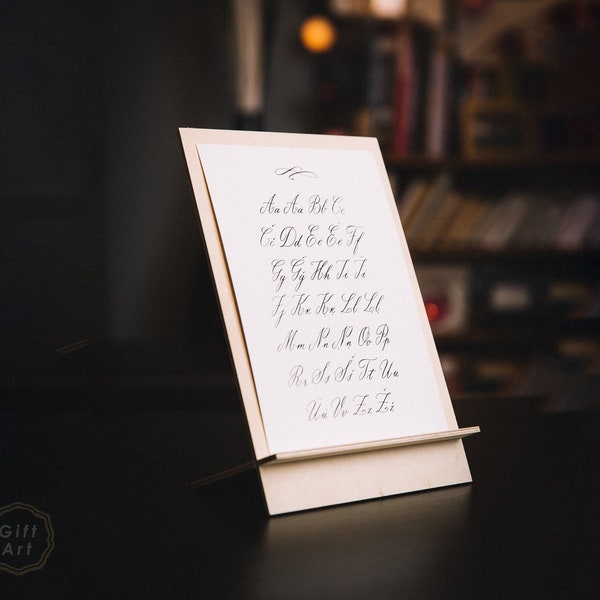 Aa Āā Bb Cc
Čč Dd Ee Ēē Ff
Gg Ģģ Hh Ii Īī
Jj Kk Ķķ Ll Ļļ
Mm Nn Ņņ Oo Pp
Rr Ss Šš Tt Uu
Ūū Vv Zz Žž
Gift
Art